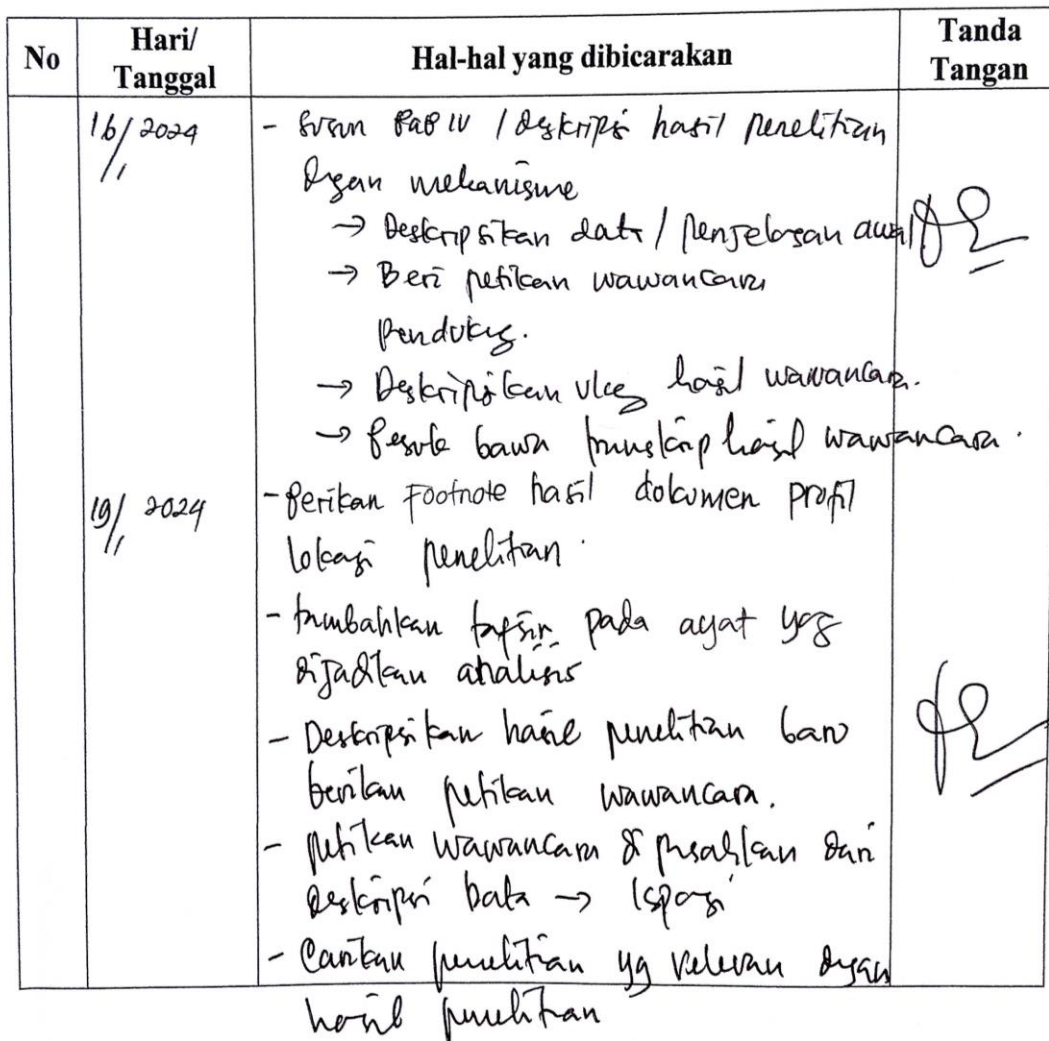 No
Hari/
Tanggal
Hal-hal yang dibicarakan
Tanda
Tangan
16/1 2024
- Susun BAB IV / deskripsi hasil penelitian
dgan mekanisme
→ Deskripsikan data / penjelasan awal
→ Beri petikan wawancara
pendukung.
→ Deskripsikan ulag hasil wawancara.
→ Besok bawa transkrip hasil wawancara.
19/1 2024
- Berikan Footnote hasil dokumen profil
lokasi penelitian.
- tambahkan tafsir pada ayat yag
dijadikan analisis
- Deskripsikan hasil penelitian baru
berikan petikan wawancara.
- petikan wawancara dipisahkan dari
deskripsi data → 1 spasi
- Carikan penelitian yg relevan dgan
hasil penelitian